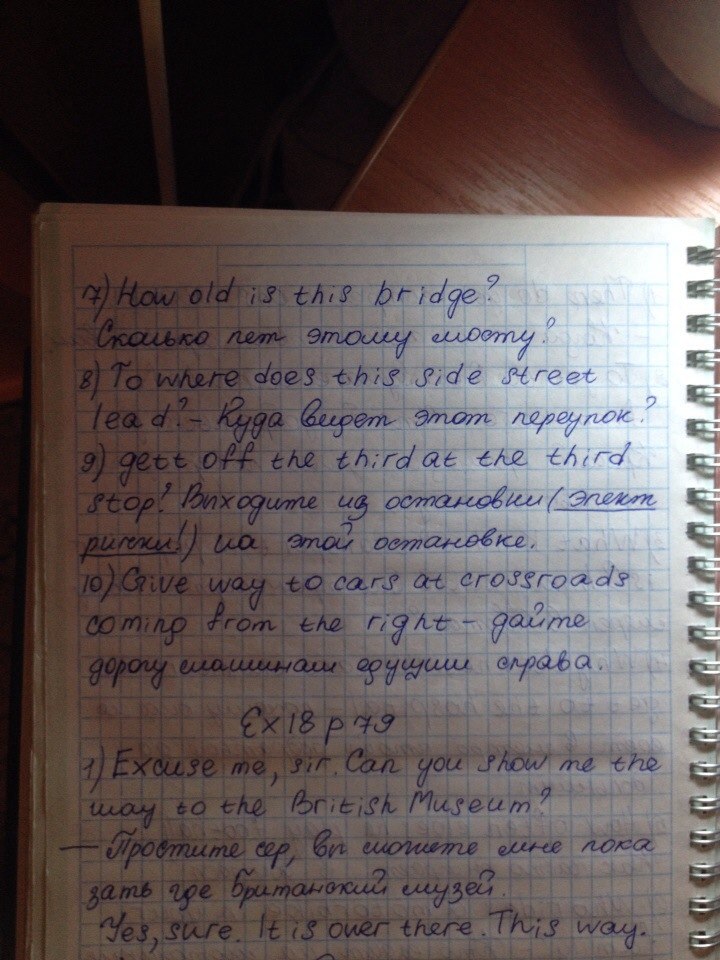 7) How old is this bridge?
Сколько лет этому мосту?
8) To where does this side street
lead? - Куда видет этот переулок?
9) gett off the third at the third
stop! Выходите из остановки (элект
рички!) на этой остановке.
10) Give way to cars at crossroads
coming from the right - дайте
дорогу машинам едущим справа.
Ex 18 p 79
1) Excuse me, sir. Can you show me the
way to the British Museum?
— Простите сер, вы можете мне пока
зать где Британский музей.
Yes, sure. It is over there. This way.